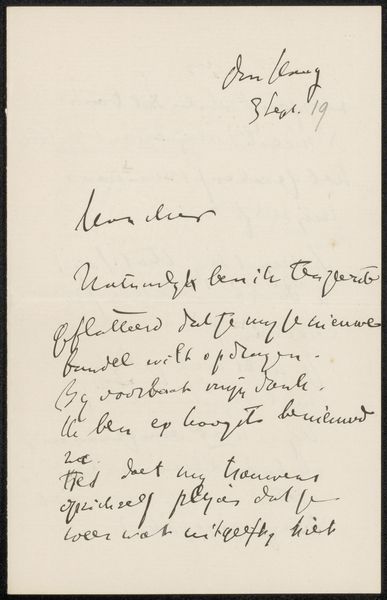 Den Haag
3 Sept. 19
Mon cher
Natuurlijk ben ik ten zeerste
geflatteerd dat je mij je nieuwe
bundel wilt opdragen.
Bij voorbaat mijn dank.
Ik ben er hoogst benieuwd
Het doet mij trouwens
opzichzelf plezier dat je
weer wat uitgeeft